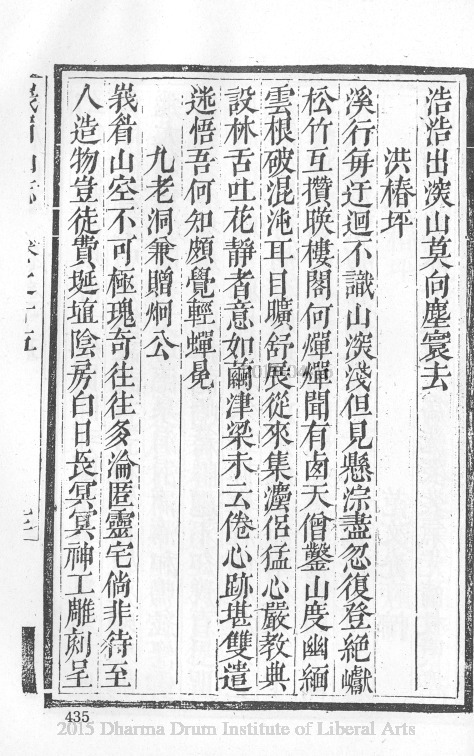 浩浩出深山莫向塵寰去
洪椿坪
溪行每迂迴不識山深淺但見懸淙盡忽復登絶巘
松竹互攢暎樓閣何煇煇聞有鹵天僧鑿山度幽緬
雲根破混沌耳目曠舒展從來集瀍侣猛心嚴教典
設林舌吐花靜者意如繭津梁未云倦心跡堪雙遣
迷悟吾何知頗覺輕蟬冕
九老洞兼贈炯公
峩眉山空不可極瑰奇往往多淪匿靈宅倘非待至
人造物豈徒費埏埴陰房白日長冥冥神工雕刻呈
峩眉山志 卷之十五
435
2015 Dharma Drum Institute of Liberal Arts